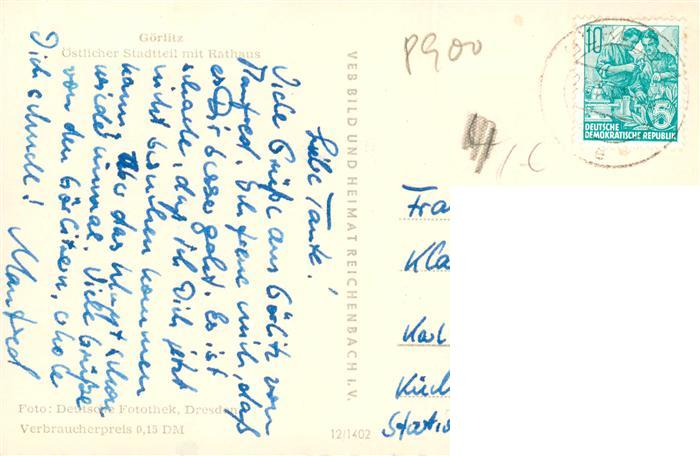 Görlitz
Östlicher Stadtteil mit Rathaus
Liebe Tante!
Viele Grüße aus Görlitz von
Manfred. Ich freue mich, daß
es Dir besser geht. Es ist
schade, daß ich Dich jetzt
nicht besuchen kommen
kann. Aber das klappt schon
wieder einmal. Viele Grüße
von den Görlitzern, erhole
Dich schnell! Manfred
Foto: Deutsche Fotothek, Dresden
Verbraucherpreis 0,15 DM
VEB BILD UND HEIMAT REICHENBACH I. V.
12/1402
P900
4/-C
10
5
DEUTSCHE
DEMOKRATISCHE REPUBLIK
Fra
Kla
Karl
Küch
Statio